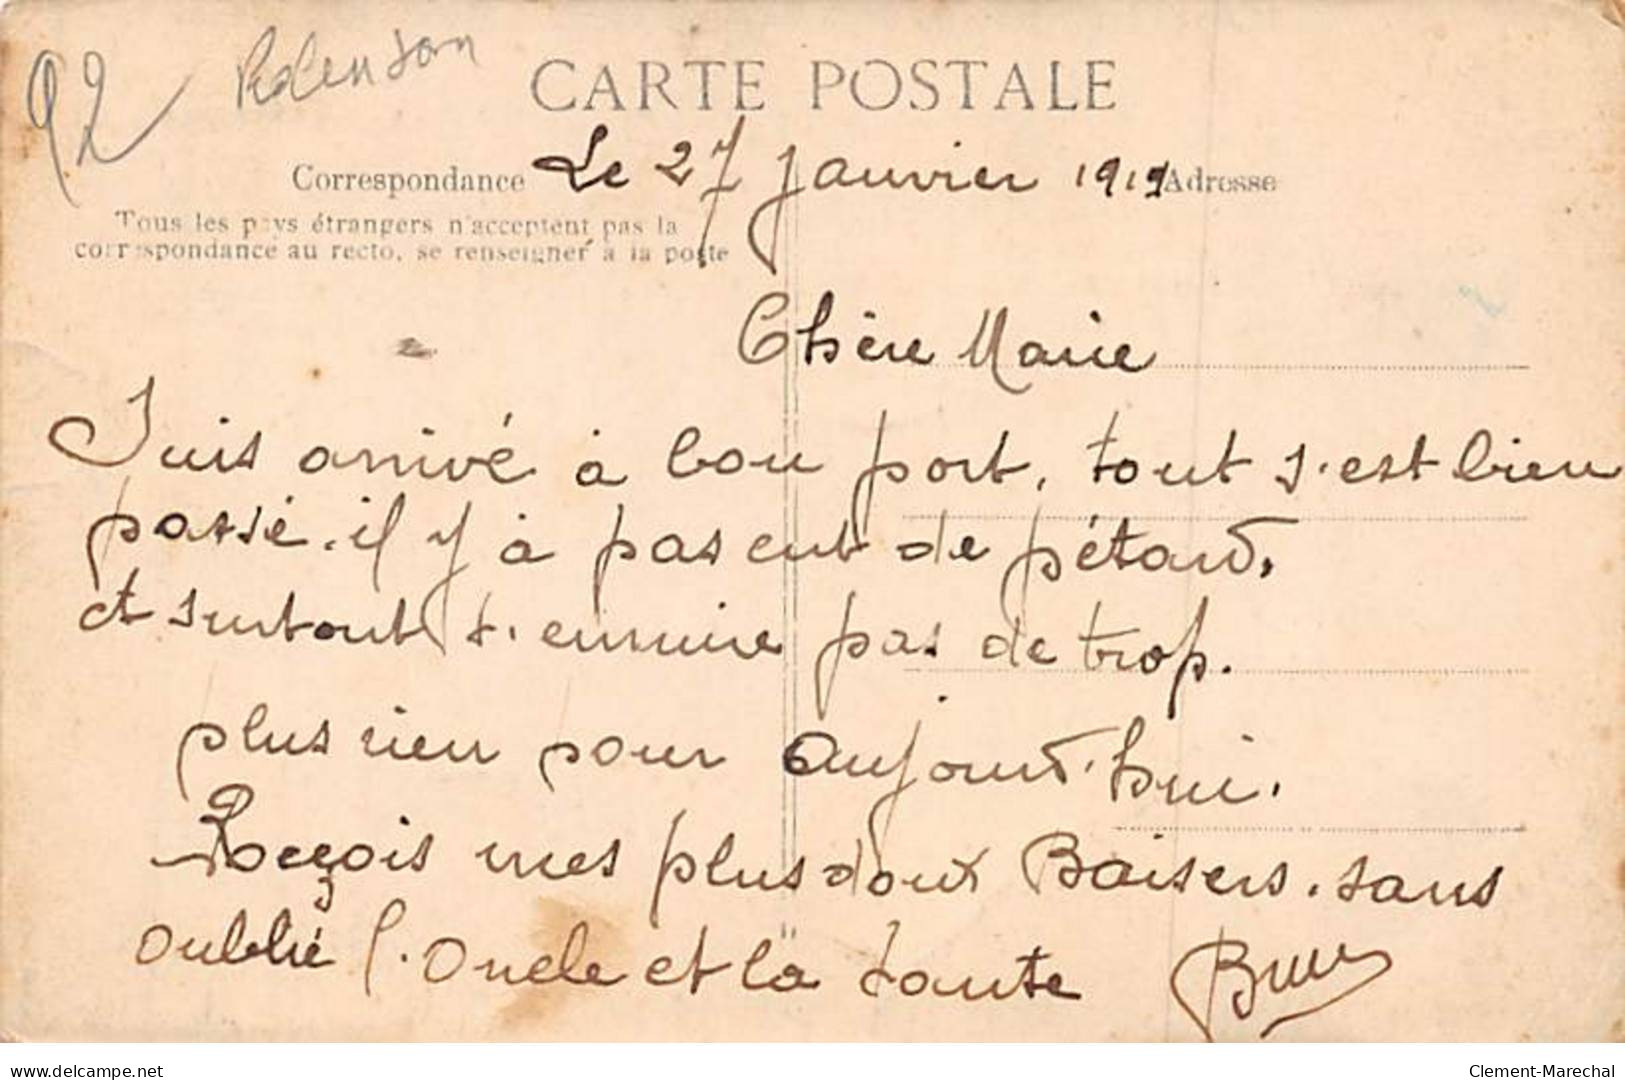 92 Robinson
CARTE POSTALE
Correspondance Le 27 Janvier 1919 Adresse
Tous les pays étrangers n'acceptent pas la
correspondance au recto, se renseigner à la poste
Chère Marie
Suis arrivé à bon port, tout s'est bien
passé. il y à pas eut de pétard,
et surtout t'ennuie pas de trop.
plus rien pour aujourd'hui.
Reçois mes plus doux Baisers. sans
oublié l'Oncle et la tante
delcampe.net
Clement-Marechal